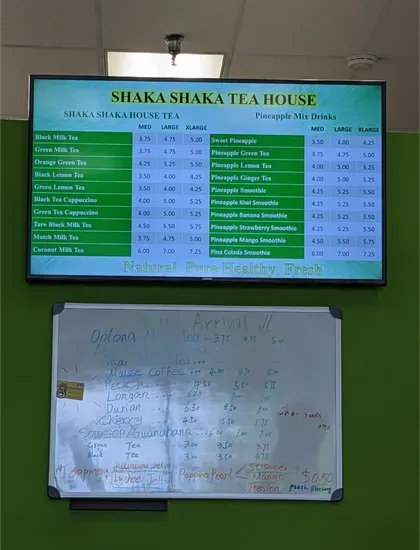 SHAKA SHAKA TEA HOUSE
SHAKA SHAKA HOUSE TEA
MED LARGE XLARGE
Black Milk Tea 3.75 4.75 5.00
Green Milk Tea 3.75 4.75 5.00
Orange Green Tea 4.25 5.25 5.50
Black Lemon Tea 3.50 4.00 4.25
Green Lemon Tea 3.50 4.00 4.25
Black Tea Cappuccino 4.00 5.00 5.25
Green Tea Cappuccino 4.00 5.00 5.25
Taro Black Milk Tea 4.50 5.50 5.75
Match Milk Tea 3.75 4.75 5.00
Coconut Milk Tea 6.00 7.00 7.25
Pineapple Mix Drinks
MED LARGE XLARGE
Sweet Pineapple 3.50 4.00 4.25
Pineapple Green Tea 3.75 4.75 5.00
Pineapple Lemon Tea 4.00 5.00 5.25
Pineapple Ginger Tea 4.00 5.00 5.25
Pineapple Smoothie 4.25 5.25 5.50
Pineapple Kiwi Smoothie 4.25 5.25 5.50
Pineapple Banana Smoothie 4.25 5.25 5.50
Pineapple Strawberry Smoothie 4.25 5.25 5.50
Pineapple Mango Smoothie 4.50 5.50 5.75
Pina Colada Smoothie 6.00 7.00 7.25
Natural Pure Healthy Fresh
Arrival
Tea
Tea
Mousse Coffee
Peach 4.50
Longan
Durian 6.50 8.50
Cherry 4.50 5.50 5.75
Soursop/Guanabana 7.00
Green Tea 3.00 3.50 3.75
Black Tea 3.00 3.50 3.75
Rainbow Jelly
Lychee Jelly
Popping Pearl
Mango
$0.50